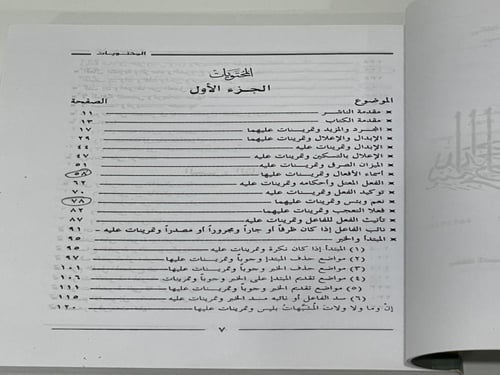 المحتويات
المحتويات
الجزء الأول
الموضوع الصفحة
× مقدمة الناشر ١١
× مقدمة الكتاب ١٣
× المجرد والمزيد وتمرينات عليهما ١٧
× الإبدال والإعلال وتمرينات عليهما
× الإبدال وتمرينات عليه ٤٤
× الإعلال بالتسكين وتمرينات عليه ٤٧
× الميزان الصرف وتمرينات عليه ٥١
× أسماء الأفعال وتمرينات عليها ٥٨
× الفعل المعتل وأحكامه وتمرينات عليه ٦٢
× توكيد الفعل وتمرينات عليه ٧٠
× نعم وبئس وتمرينات عليهما ٧٨
× فعلا التعجب وتمرينات عليهما ٨٢
× تأنيث الفعل للفاعل وتمرينات عليه ٨٧
× نائب الفاعل إذا كان ظرفاً أو جاراً ومجروراً أو مصدراً وتمرينات عليه ٩١
× المبتدأ والخبر ٩٥
(١) المبتدأ إذا كان نكرة وتمرينات عليه ٩٥
(٢) مواضع حذف المبتدإ وجوباً وتمرينات عليها ٩٧
(٣) مواضع حذف الخبر وجوباً وتمرينات عليها ١٠١
(٤) مواضع تقديم المبتدإ على الخبر وجوباً وتمرينات عليها ١٠٦
(٥) مواضع تقديم الخبر وجوباً وتمرينات عليها ١١١
(٦) سد الفاعل أو نائبه مسد الخبر وتمرينات عليه ١١٥
إن وما ولا ولات المشبهات بليس وتمرينات عليها ١٢٠
٧